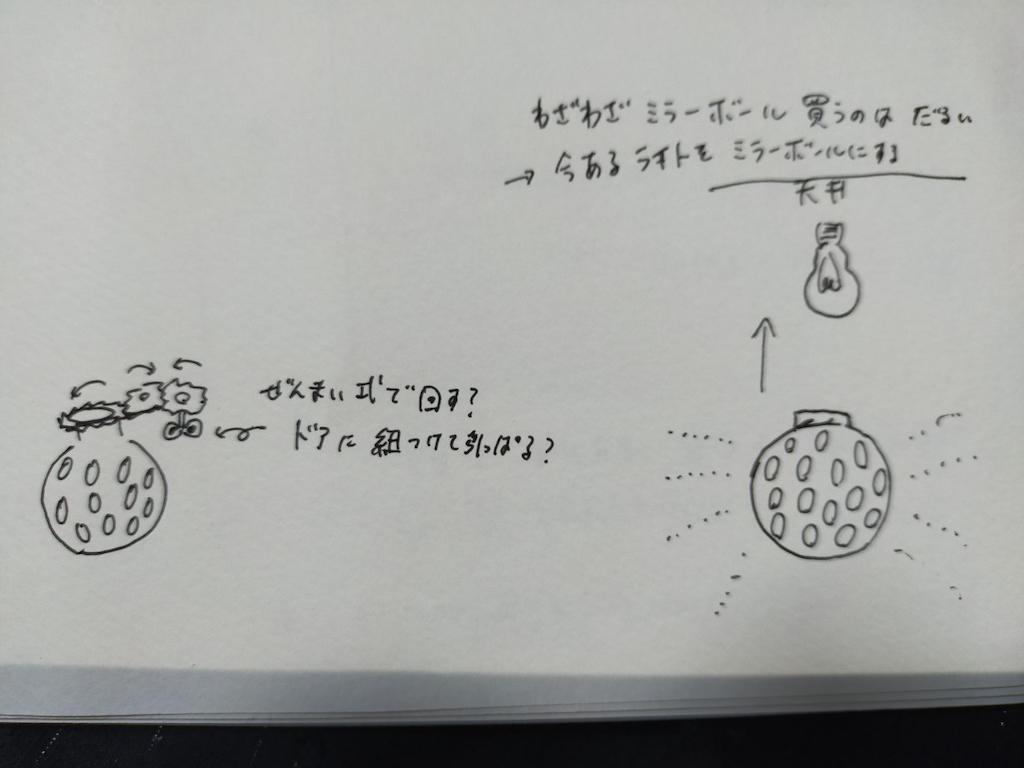 わざわざ ミラーボール 買うのは だるい
→ 今ある ライトを ミラーボールにする
天井
ぜんまい式で回す?
ドアに 紐つけて引っぱる?